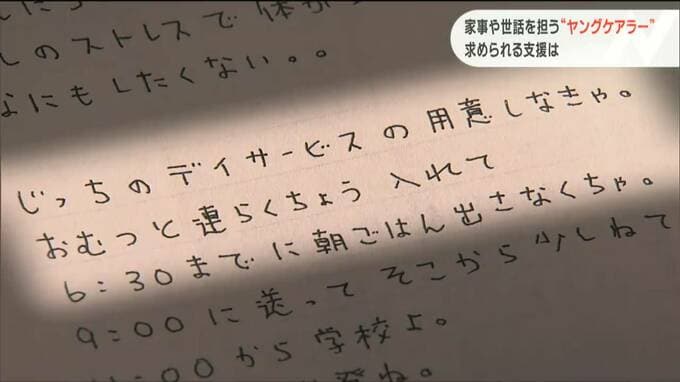 家事や世話を担う“ヤングケアラー”
求められる支援は
しのストレスで体が
なにもしたくない。。
じっちのデイサービスの用意しなきゃ。
おむつと連らくちょう入れて
6:30までに朝ごはん出さなくちゃ。
9:00に送ってそこから少しねて
:00から学校よ。
ね。